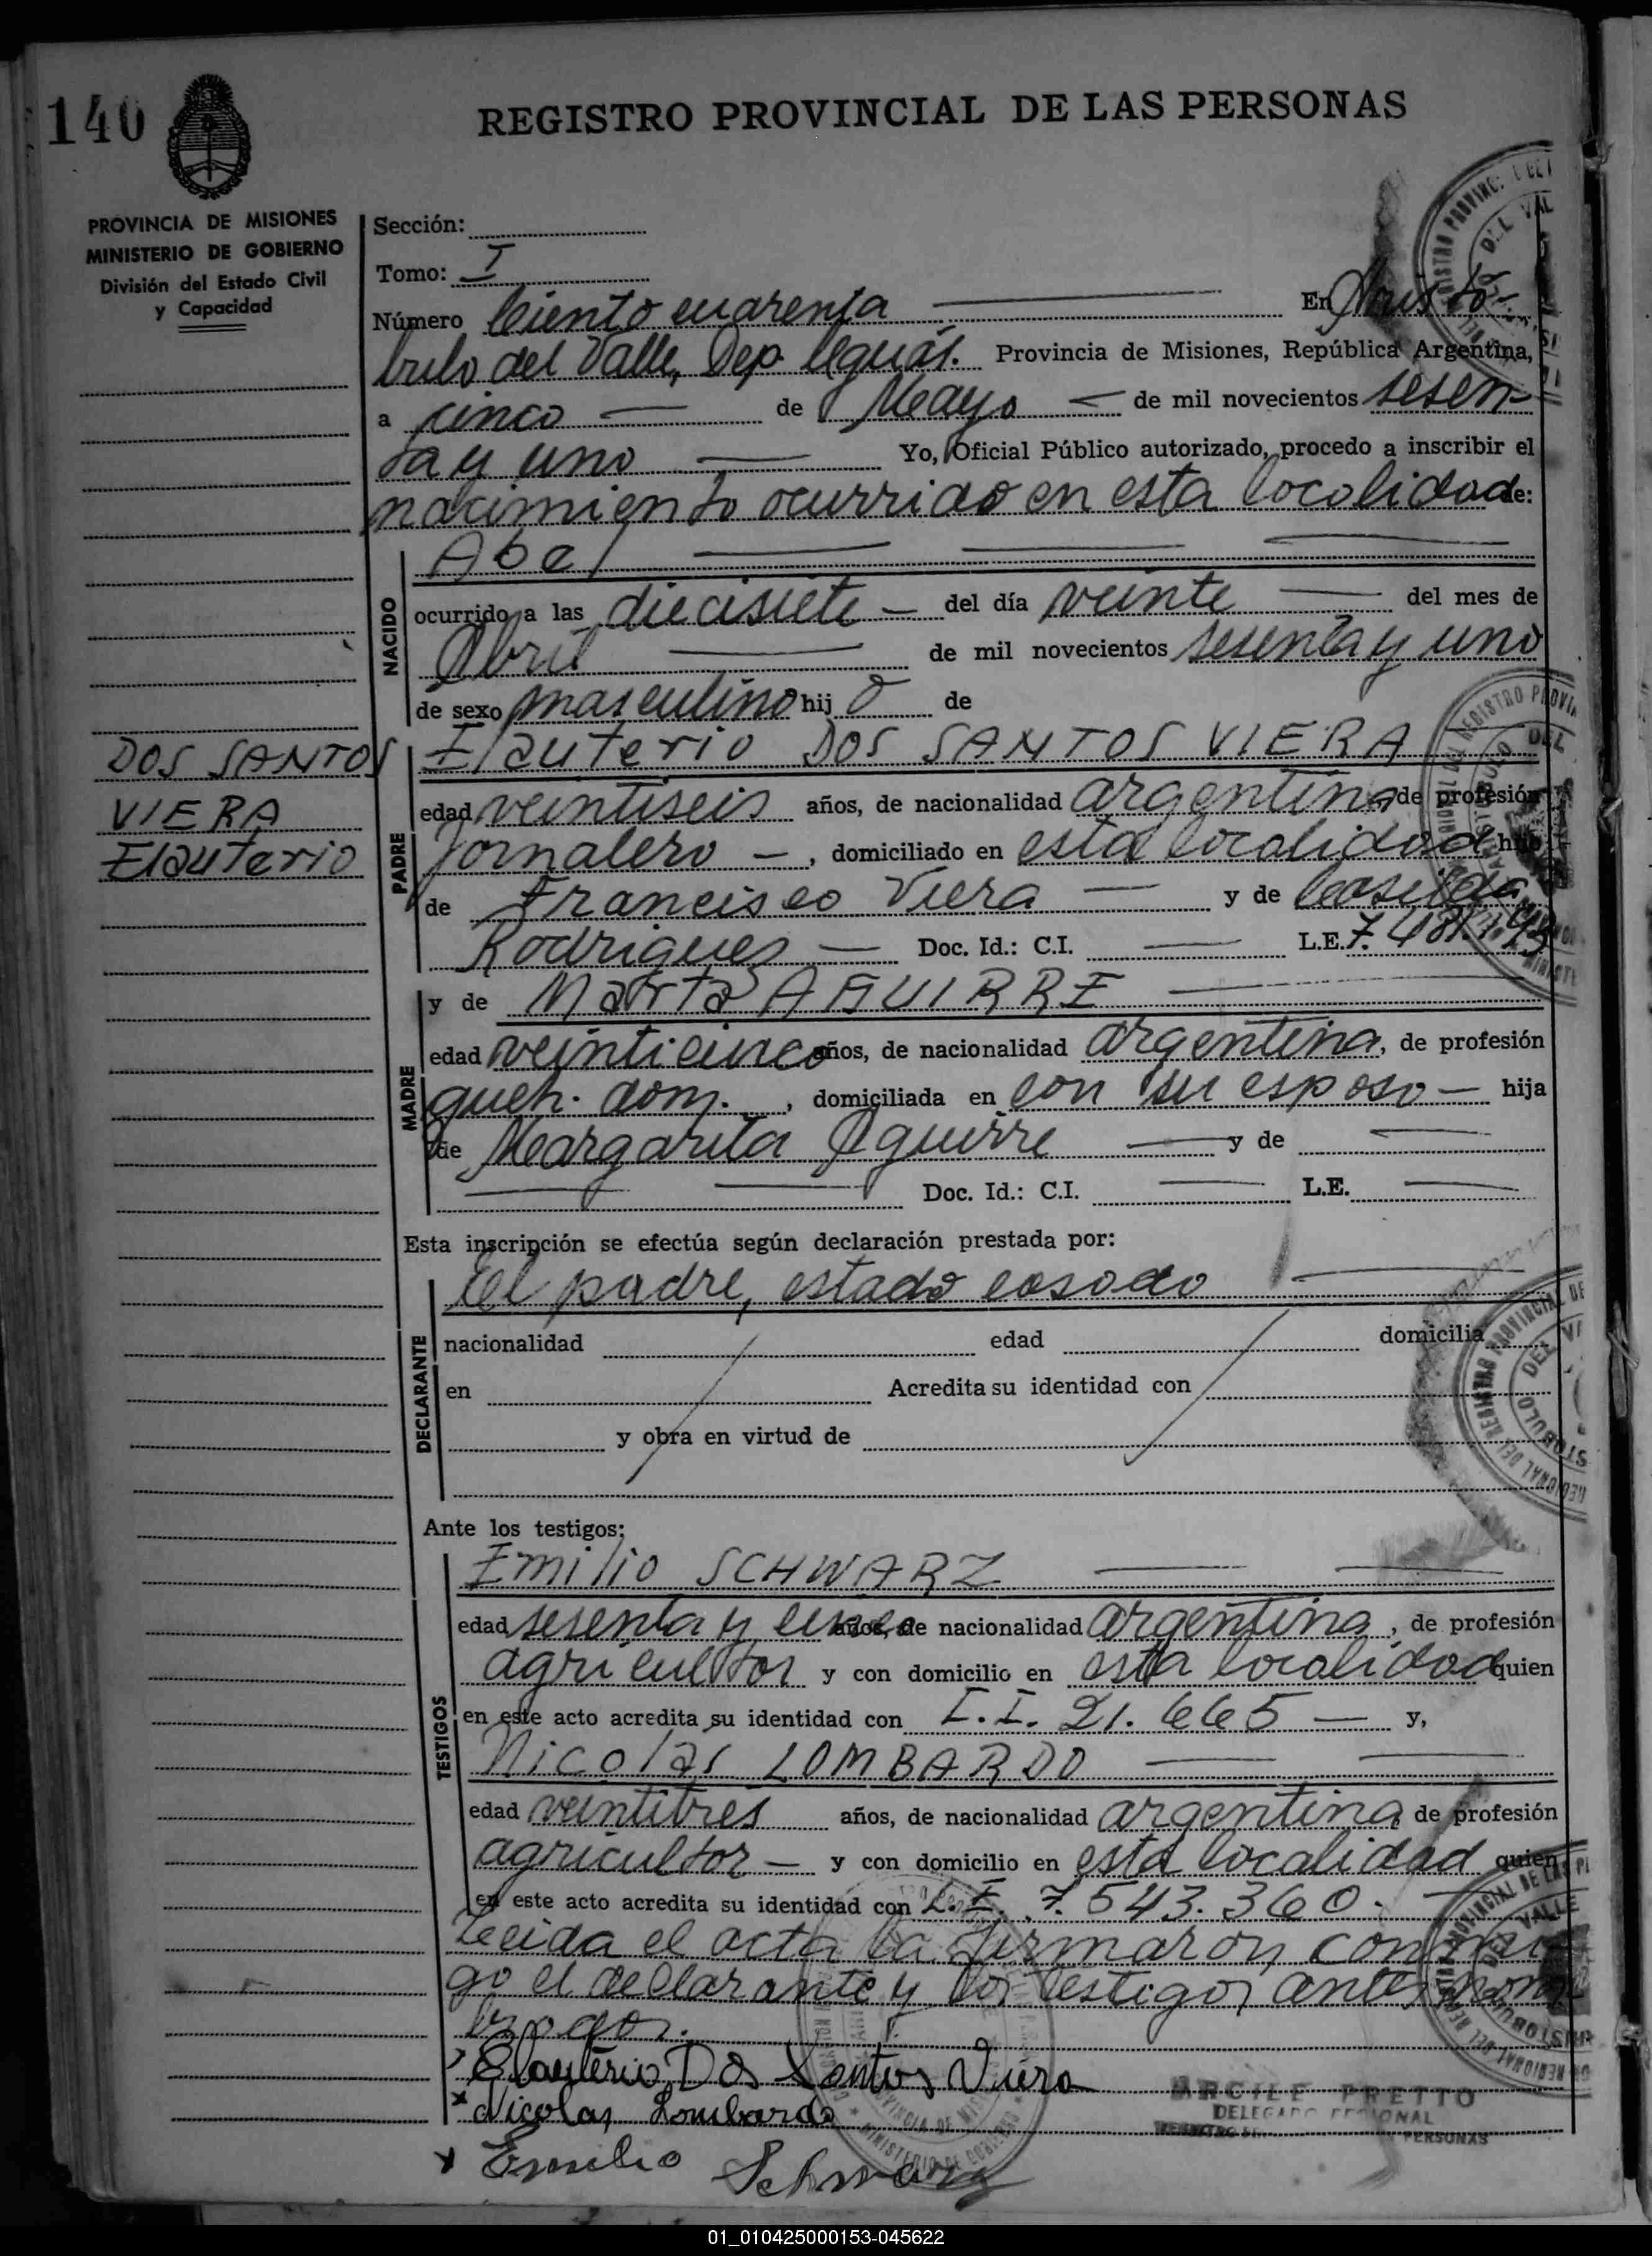 140
REGISTRO PROVINCIAL DE LAS PERSONAS
PROVINCIA DE MISIONES
MINISTERIO DE GOBIERNO
División del Estado Civil
y Capacidad
Sección:
Tomo: I
Número Ciento cuarenta En Aristo
bulo del Valle, Dep. Cguás. Provincia de Misiones, República Argentina,
a cinco de Mayo de mil novecientos sesen-
ta y uno Yo, Oficial Público autorizado, procedo a inscribir el
nacimiento ocurrido en esta localidad de:
NACIDO
Abel
ocurrido a las diecisiete del día veinte del mes de
Abril de mil novecientos sesenta y uno
de sexo masculino hij o de
DOS SANTOS
VIERA
Elauterio
PADRE
Elauterio DOS SANTOS VIERA
edad veintiseis años, de nacionalidad argentina, de profesión
Jornalero, domiciliado en esta localidad hijo
de Francisco Viera y de Casilda
Rodrigues Doc. Id.: C.I. L.E. 7.481.
MADRE
y de Marta AGUIRRE
edad veinticinco años, de nacionalidad argentina, de profesión
queh. dom., domiciliada en con su esposo hija
de Margarita Aguirre y de
Doc. Id.: C.I. L.E.
Esta inscripción se efectúa según declaración prestada por:
DECLARANTE
El padre, estado casado
nacionalidad edad domicilia
en Acredita su identidad con
y obra en virtud de
Ante los testigos:
TESTIGOS
Emilio SCHWARZ
edad sesenta y cinco años, de nacionalidad argentina, de profesión
agricultor y con domicilio en esta localidad quien
en este acto acredita su identidad con C.I. 21.665 y,
Nicolás LOMBARDO
edad veintitres años, de nacionalidad argentina de profesión
agricultor y con domicilio en esta localidad quien
en este acto acredita su identidad con L.E. 7.543.360.
Leida el acta la firmaron conmi
go el declarante y los testigos antes nom
brados.
Elauterio Dos Santos Viera
Nicolas Lombardo
Emilio Schwarz
ARCILE PRETTO
DELEGADO REGIONAL
PERSONAS
01_010425000153-045622